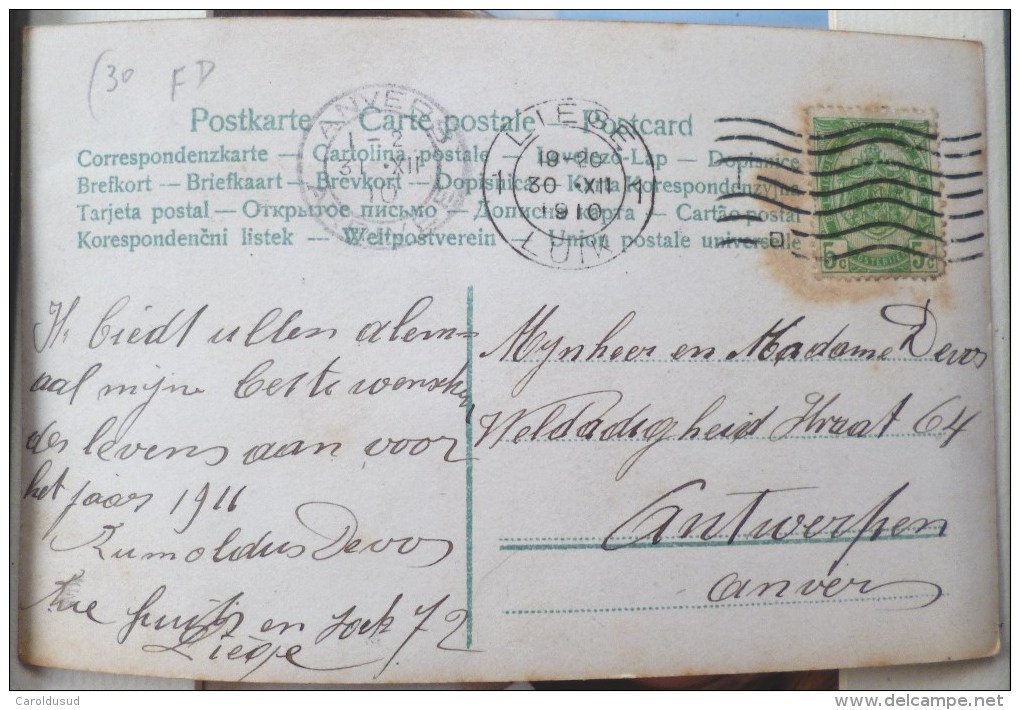 (30 FD
Postkarte Carte postale Postcard
Correspondenzkarte — Cartolina postale — Levelező-Lap — Dopisnice
Brefkort — Briefkaart — Brevkort — Dopisnica — Karta Korespondenzyjna
Tarjeta postal — Открытое письмо — Дописна карта — Cartão postal
Korespondenční listek — Weltpostverein — Union postale universelle
ANVERS
1 - 2
31 · XII
10
LIEGE
1 19-20 1
30 · XII
1910
LUIK
5c 5c
Ik biedt ullen alem-
aal mijne beste wenschen
des levens aan voor
het jaar 1911
Rumoldus Devos
Rue en 72
Liège
Mynheer en Madame Devos
Weldadigheid straat 64
Antwerpen
anver
Caroldusud
www.delcampe.net